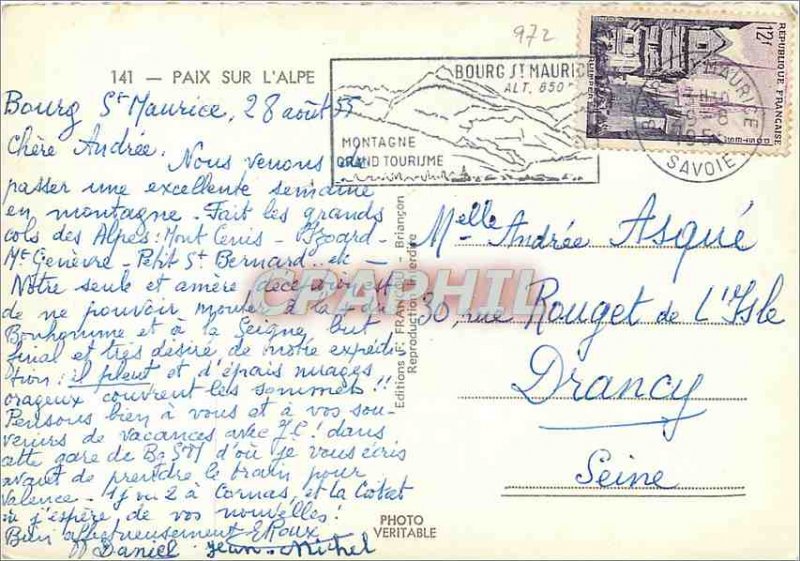 972
141 — PAIX SUR L'ALPE
Bourg St Maurice, 28 août 55
Chère Andrée.
Nous venons de
passer une excellente semaine
en montagne. Fait les grands
cols des Alpes: Mont Cenis - Izoard -
Mt Genèvre - Petit St Bernard.. etc -
Notre seule et amère déception est
de ne pouvoir monter à la
Bonhomme et à la Seigne, but
final et très désiré de notre expédi
tion: il pleut et d'épais nuages
orageux couvrent les sommets!!
Pensons bien à vous et à vos sou-
venirs de vacances avec J.C! dans
cette gare de Bg St M d'où je vous écris
avant de prendre le train pour
Valence - 1 j ou 2 à Cornas, et la Ciotat
où j'espère de vos nouvelles!
Bien affectueusement ERoux
Daniel Jean-Michel
BOURG ST MAURICE
ALT. 850 m
MONTAGNE
GRAND TOURISME
RÉPUBLIQUE FRANÇAISE
12f
POSTES
QUIMPER
BOURG ST MAURICE
SAVOIE
Melle Andrée Asqué
30, rue Rouget de L'Isle
Drancy
Seine
Editions F. FRANCOU - Briançon
Reproduction interdite
PHOTO
VERITABLE
CPAPHIL